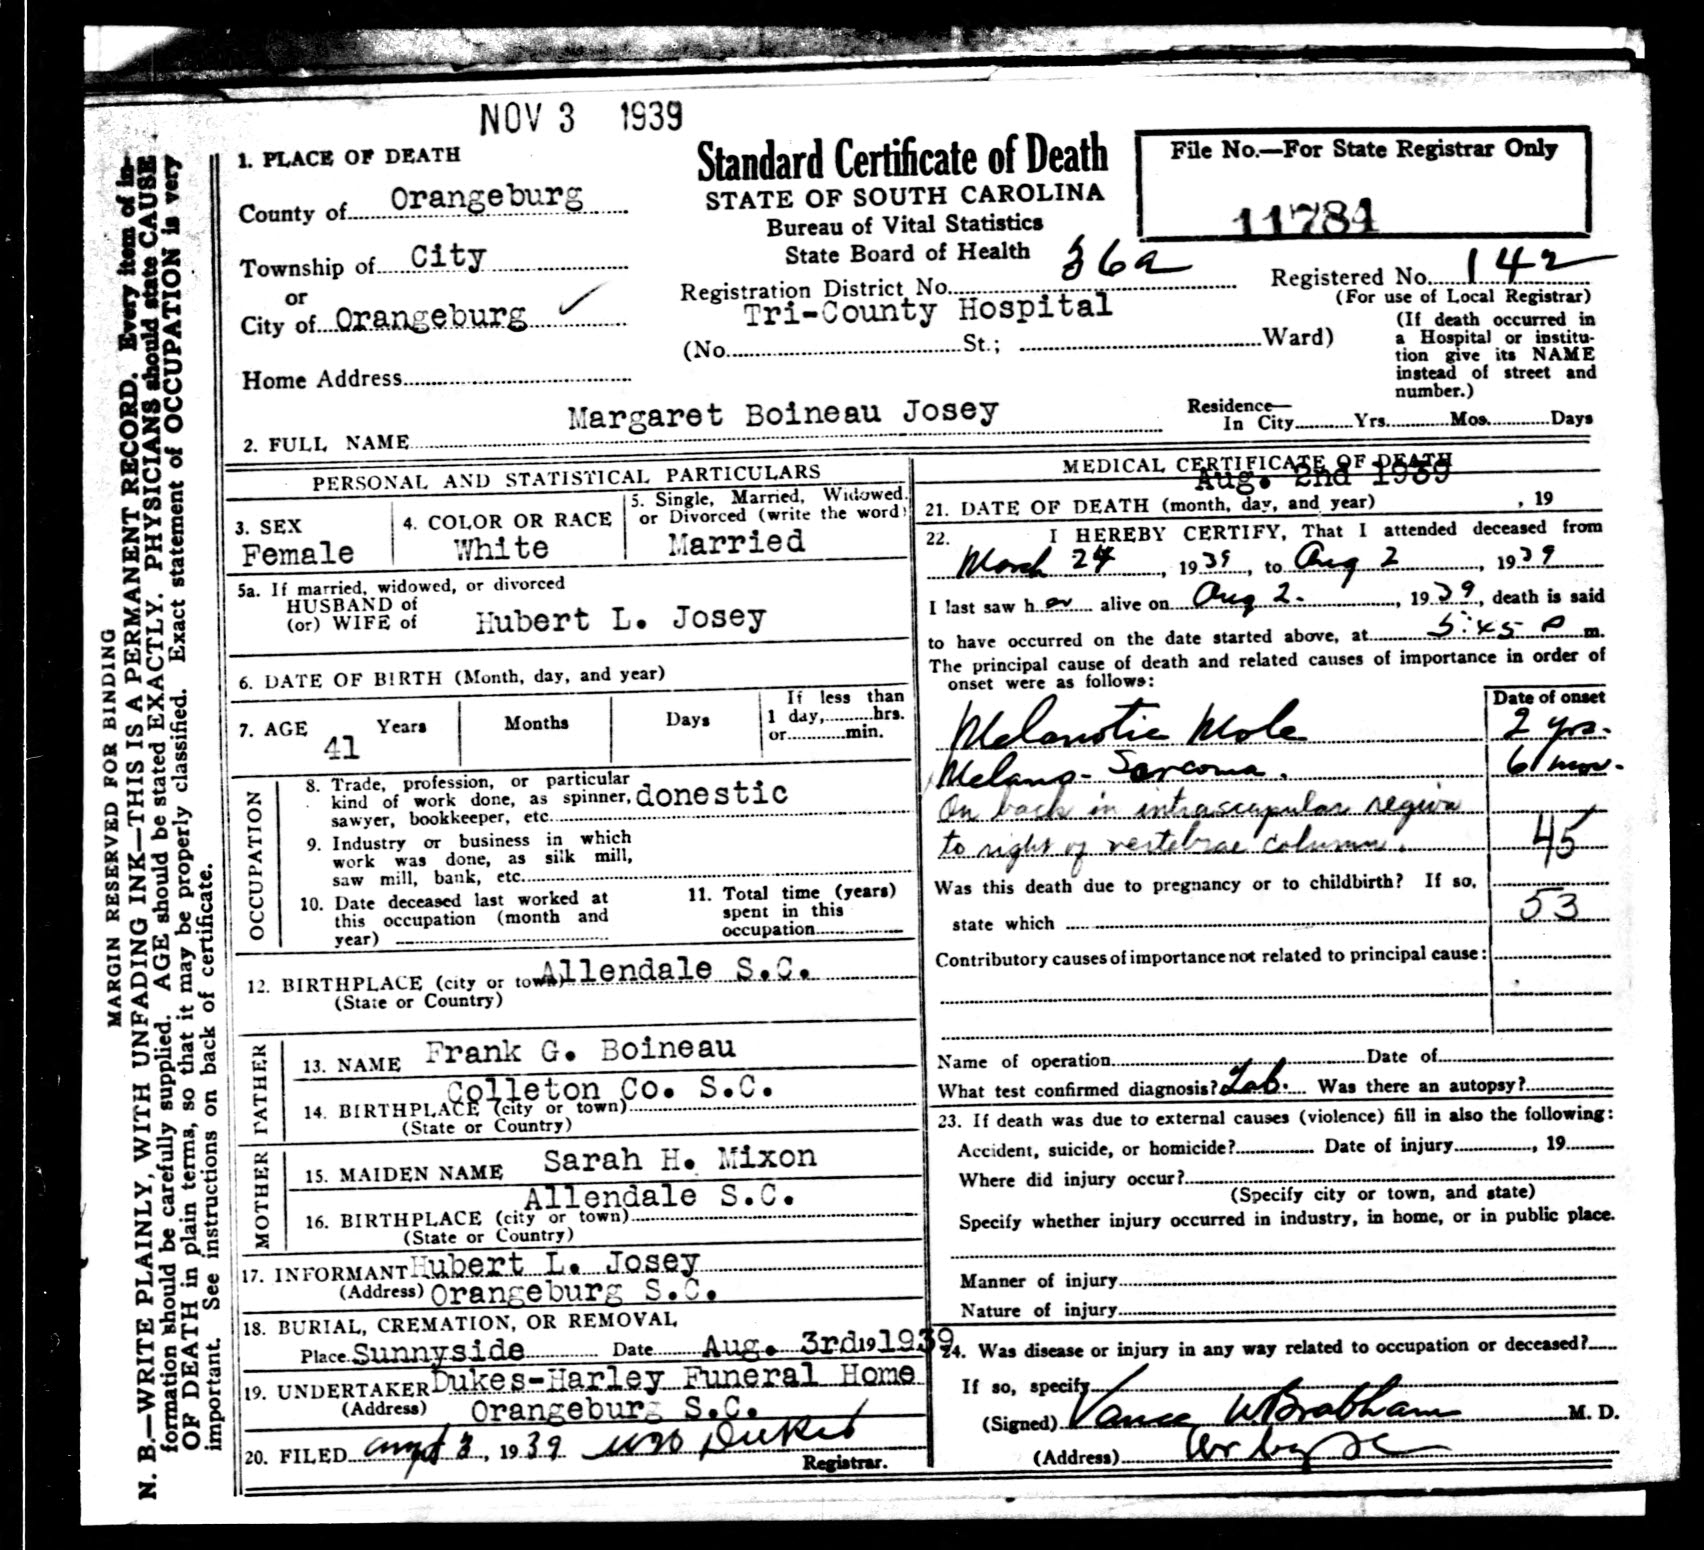 NOV 3 1939
1. PLACE OF DEATH
County of Orangeburg
Township of City
or
City of Orangeburg
Home Address
Standard Certificate of Death
STATE OF SOUTH CAROLINA
Bureau of Vital Statistics
State Board of Health
Registration District No. 36a
Tri-County Hospital
(No. St.; Ward)
File No.—For State Registrar Only
11784
Registered No. 142
(For use of Local Registrar)
(If death occurred in
a Hospital or institu-
tion give its NAME
instead of street and
number.)
2. FULL NAME Margaret Boineau Josey
Residence—
In City Yrs. Mos. Days
PERSONAL AND STATISTICAL PARTICULARS
3. SEX
Female
4. COLOR OR RACE
White
5. Single, Married, Widowed,
or Divorced (write the word)
Married
5a. If married, widowed, or divorced
HUSBAND of
(or) WIFE of
Hubert L. Josey
6. DATE OF BIRTH (Month, day, and year)
7. AGE Years Months Days
41
If less than
1 day, hrs.
or min.
OCCUPATION
8. Trade, profession, or particular
kind of work done, as spinner, donestic
sawyer, bookkeeper, etc.
9. Industry or business in which
work was done, as silk mill,
saw mill, bank, etc.
10. Date deceased last worked at
this occupation (month and
year)
11. Total time (years)
spent in this
occupation
12. BIRTHPLACE (city or town) Allendale S.C.
(State or Country)
FATHER
13. NAME Frank G. Boineau
Colleton Co. S.C.
14. BIRTHPLACE (city or town)
(State or Country)
MOTHER
15. MAIDEN NAME Sarah H. Mixon
Allendale S.C.
16. BIRTHPLACE (city or town)
(State or Country)
17. INFORMANT Hubert L. Josey
(Address) Orangeburg S.C.
18. BURIAL, CREMATION, OR REMOVAL
Place Sunnyside Date Aug. 3rd 19 1939
19. UNDERTAKER Dukes-Harley Funeral Home
(Address) Orangeburg S.C.
20. FILED 3, 1939 Dukes
Registrar.
MEDICAL CERTIFICATE OF DEATH
Aug. 2nd 1939
21. DATE OF DEATH (month, day, and year) , 19
22. I HEREBY CERTIFY, That I attended deceased from
March 24, 1939, to Aug 2, 1939
I last saw her alive on Aug 2., 1939, death is said
to have occurred on the date started above, at 5:45 P m.
The principal cause of death and related causes of importance in order of
onset were as follows:
Date of onset
Melanotic Mole 2 yrs.
Melano-Sarcoma. 6 mos.
On back in intrascapular region
to right of vertebrae column. 45
Was this death due to pregnancy or to childbirth? If so,
state which 53
Contributory causes of importance not related to principal cause:
Name of operation Date of
What test confirmed diagnosis? Lab. Was there an autopsy?
23. If death was due to external causes (violence) fill in also the following:
Accident, suicide, or homicide? Date of injury , 19
Where did injury occur?
(Specify city or town, and state)
Specify whether injury occurred in industry, in home, or in public place.
Manner of injury
Nature of injury
24. Was disease or injury in any way related to occupation or deceased?
If so, specify
(Signed) Vance W Brabham M. D.
(Address)
MARGIN RESERVED FOR BINDING
N. B.—WRITE PLAINLY, WITH UNFADING INK—THIS IS A PERMANENT RECORD. Every item of in-
formation should be carefully supplied. AGE should be stated EXACTLY. PHYSICIANS should state CAUSE
OF DEATH in plain terms, so that it may be properly classified. Exact statement of OCCUPATION is very
important. See instructions on back of certificate.